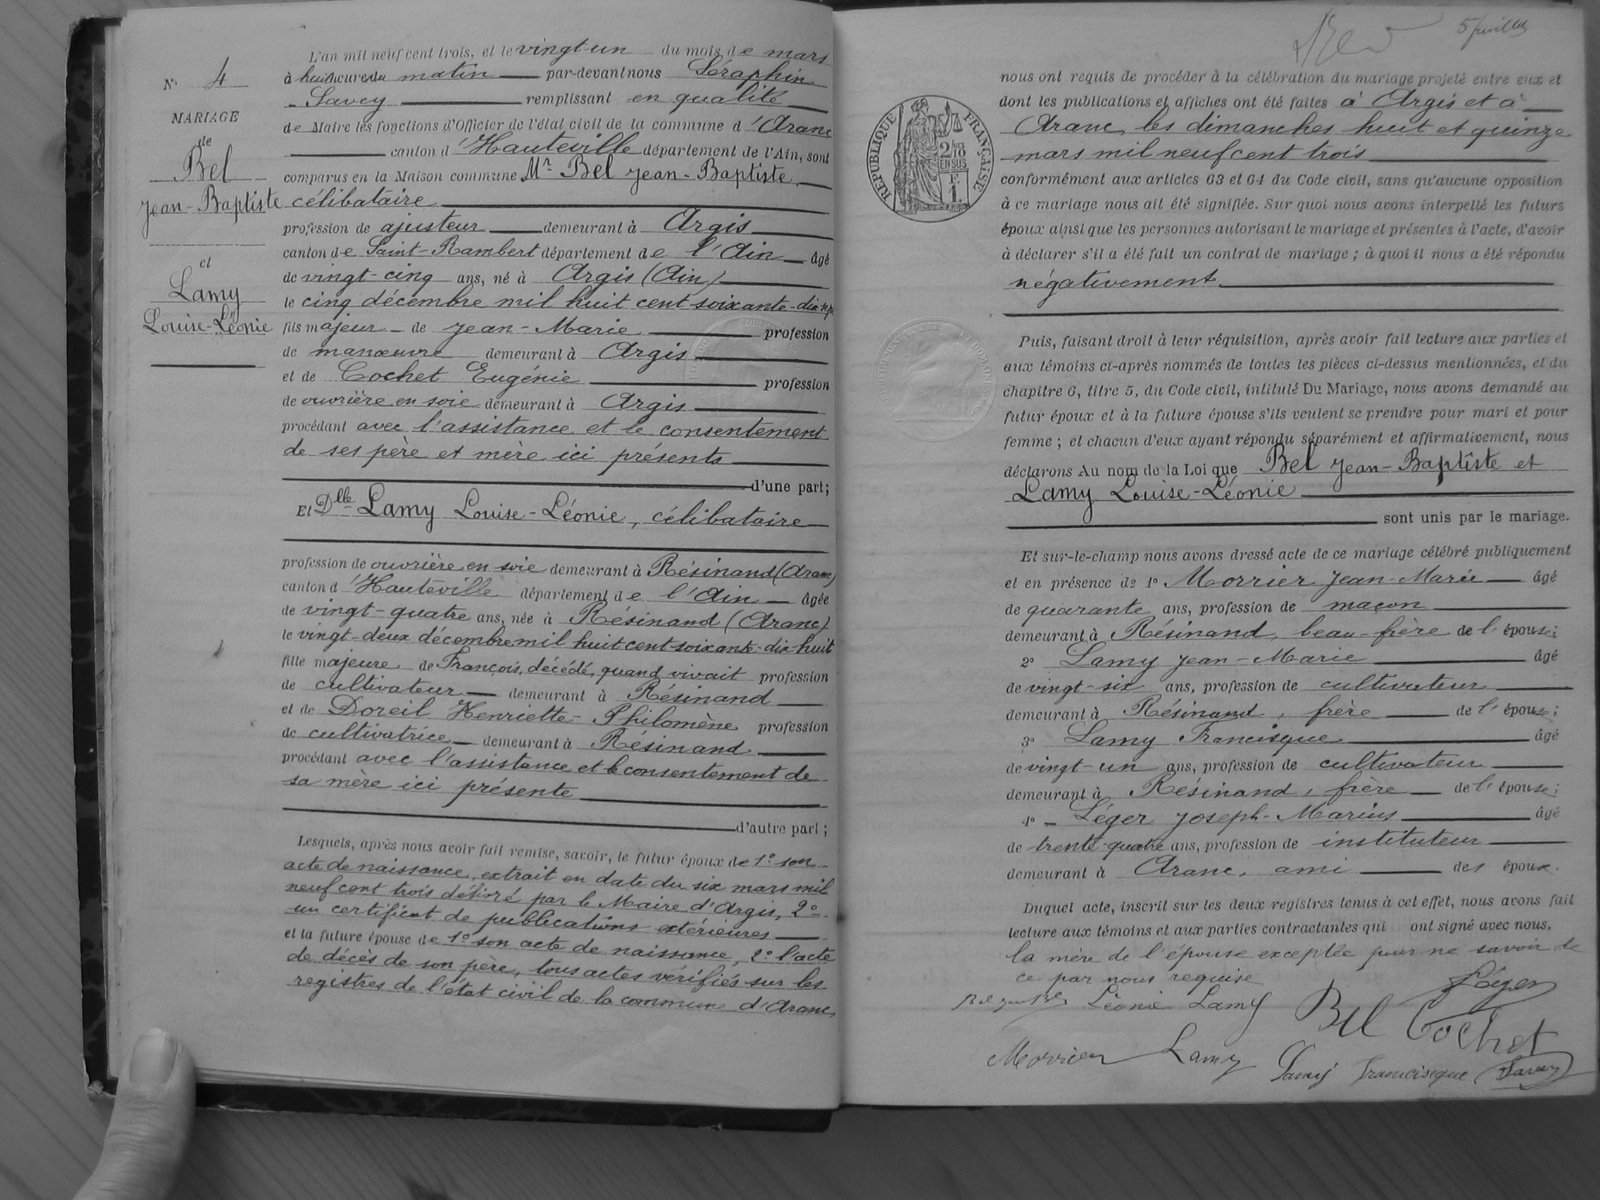 N° 4
MARIAGE
de
Bel
Jean-Baptiste
et
Lamy
Louise-Léonie
L'an mil neuf cent trois, et le vingt-un du mois de mars
à huit heures du matin par-devant nous Séraphin
Savey remplissant en qualité
de Maire les fonctions d'Officier de l'état civil de la commune d'Aranc
canton d'Hauteville département de l'Ain, sont
comparus en la Maison commune Mr Bel Jean-Baptiste,
célibataire
profession de ajusteur demeurant à Argis
canton de Saint-Rambert département de l'Ain âgé
de vingt-cinq ans, né à Argis (Ain)
le cinq décembre mil huit cent soixante-dix-sept
fils majeur de Jean-Marie profession
de manœuvre demeurant à Argis
et de Cochet Eugénie profession
de ouvrière en soie demeurant à Argis
procédant avec l'assistance et le consentement
de ses père et mère ici présents
d'une part;
Et Dlle Lamy Louise-Léonie, célibataire
profession de ouvrière en soie demeurant à Résinand (Aranc)
canton d'Hauteville département de l'Ain âgée
de vingt-quatre ans, née à Résinand (Aranc)
le vingt-deux décembre mil huit cent soixante-dix-huit
fille majeure de François, décédé, quand vivait profession
de cultivateur demeurant à Résinand
et de Doreil Henriette-Philomène profession
de cultivatrice demeurant à Résinand
procédant avec l'assistance et le consentement de
sa mère ici présente
d'autre part;
Lesquels, après nous avoir fait remise, savoir, le futur époux de 1° son
acte de naissance, extrait en date du six mars mil
neuf cent trois délivré par le Maire d'Argis, 2°
un certificat de publications extérieures
et la future épouse de 1° son acte de naissance, 2° l'acte
de décès de son père, tous actes vérifiés sur les
registres de l'état civil de la commune d'Aranc,
5 juillet
nous ont requis de procéder à la célébration du mariage projeté entre eux et
dont les publications et affiches ont été faites à Argis et à
Aranc, les dimanches huit et quinze
mars mil neuf cent trois
conformément aux articles 63 et 64 du Code civil, sans qu'aucune opposition
à ce mariage nous ait été signifiée. Sur quoi nous avons interpellé les futurs
époux ainsi que les personnes autorisant le mariage et présentes à l'acte, d'avoir
à déclarer s'il a été fait un contrat de mariage; à quoi il nous a été répondu
négativement
RÉPUBLIQUE FRANÇAISE
2/10 EN SUS
1 F
Puis, faisant droit à leur réquisition, après avoir fait lecture aux parties et
aux témoins ci-après nommés de toutes les pièces ci-dessus mentionnées, et du
chapitre 6, titre 5, du Code civil, intitulé Du Mariage, nous avons demandé au
futur époux et à la future épouse s'ils veulent se prendre pour mari et pour
femme; et chacun d'eux ayant répondu séparément et affirmativement, nous
déclarons Au nom de la Loi que Bel Jean-Baptiste et
Lamy Louise-Léonie
sont unis par le mariage.
Et sur-le-champ nous avons dressé acte de ce mariage célébré publiquement
et en présence de 1° Morrier Jean-Marie âgé
de quarante ans, profession de maçon
demeurant à Résinand, beau-frère de l'épouse;
2° Lamy Jean-Marie âgé
de vingt-six ans, profession de cultivateur
demeurant à Résinand, frère de l'épouse;
3° Lamy Francisque âgé
de vingt-un ans, profession de cultivateur
demeurant à Résinand, frère de l'épouse;
4° Léger Joseph-Marius âgé
de trente-quatre ans, profession de instituteur
demeurant à Aranc, ami des époux.
Duquel acte, inscrit sur les deux registres tenus à cet effet, nous avons fait
lecture aux témoins et aux parties contractantes qui ont signé avec nous,
la mère de l'épouse exceptée pour ne savoir de
ce par nous requise
Léger
Léonie Lamy Bel Cochet
Morrier Lamy Lamy Francisque Savey